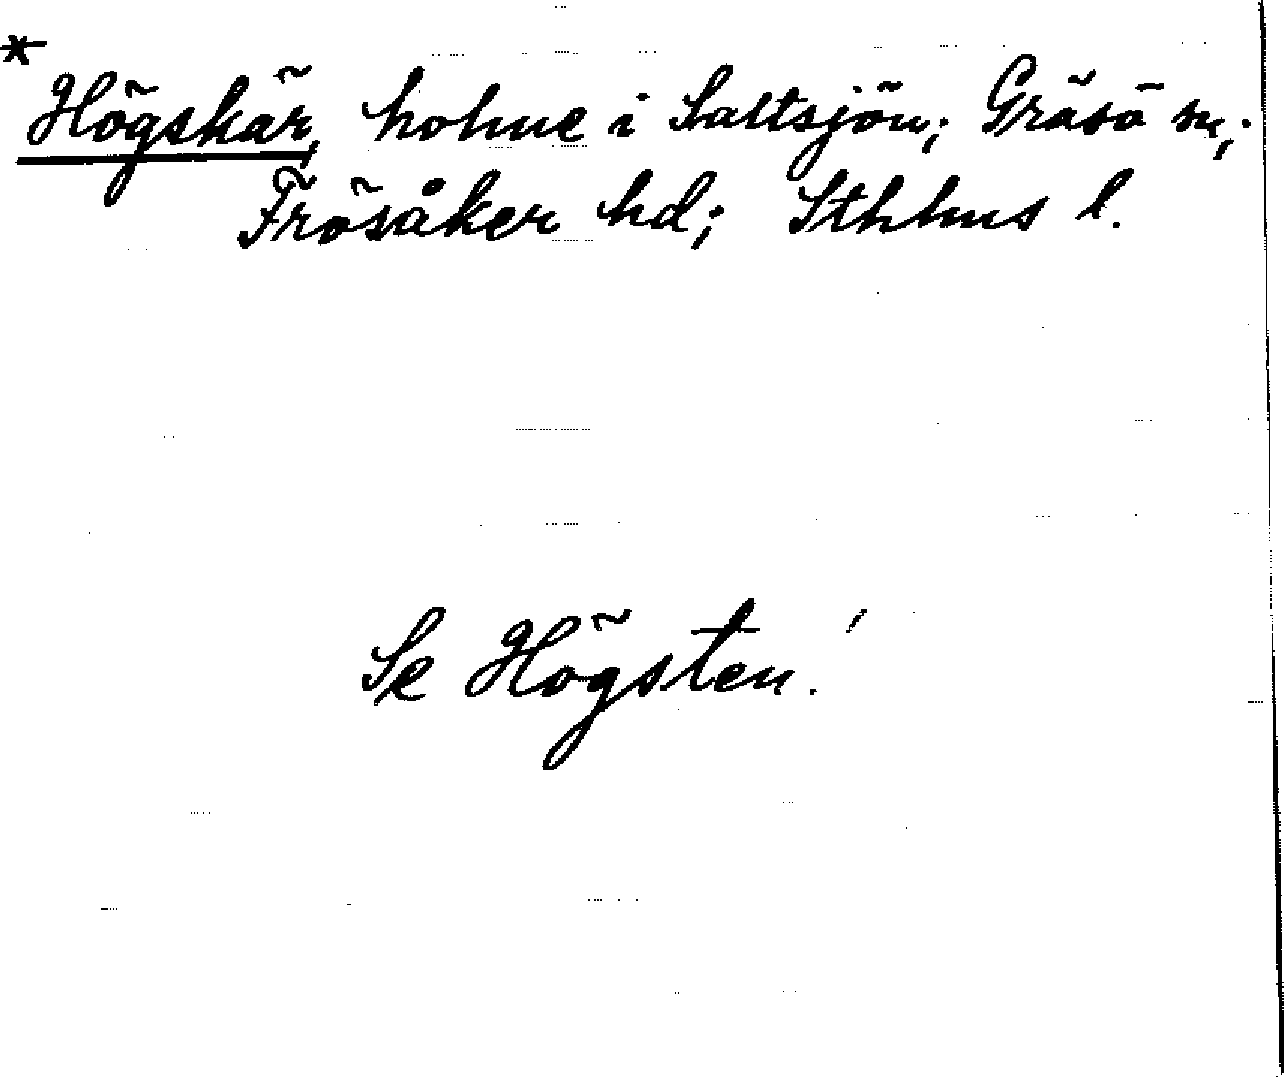 * Högskär, holme i Saltsjön; Gräsö sn;
Frösåker hd; Sthlms l.
Se Högsten!